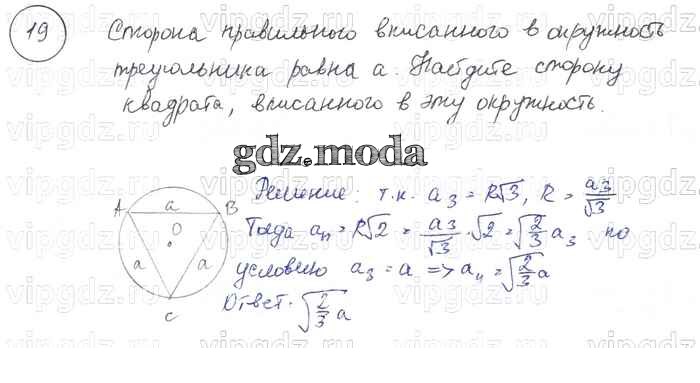 19 Сторона правильного вписанного в окружность
треугольника равна а. Найдите сторону
квадрата, вписанного в эту окружность.
gdz.moda
Решение: т.к. a₃ = R√3, R = a₃/√3
Тогда aₙ = R√2 = a₃/√3 · √2 = √(2/3) a₃ по
условию a₃ = a => a₄ = √(2/3) a
Ответ. √(2/3) a
A a B
O
a a
C
vipgdz.ru